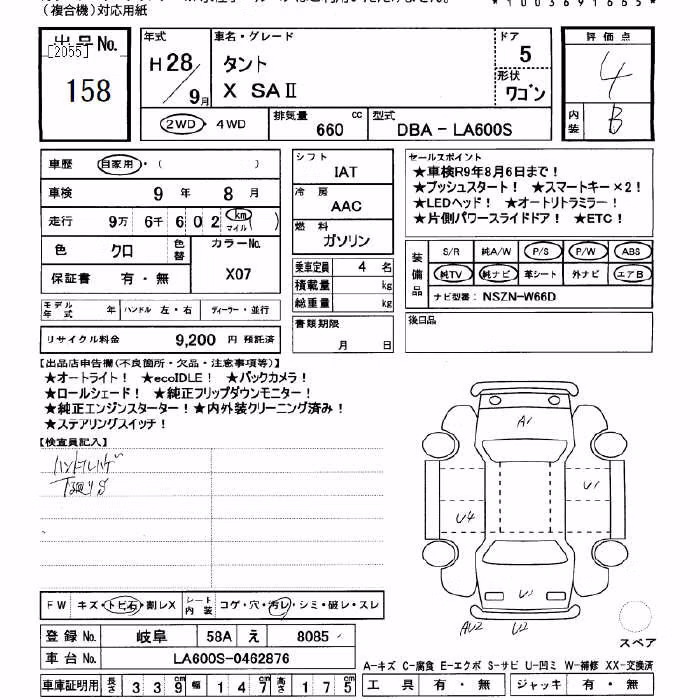 （複合機）対応用紙
出品No.
[2055]
158
年式
H28/9月
車名・グレード
タント
X SAⅡ
ドア
5
形状
ワゴン
評価点
4
内装
B
2WD・4WD
排気量 660 cc
型式 DBA－LA600S
車歴 自家用・( )
車検 9年 8月
走行 9万 6千 602 (km マイル)
色 クロ
色替
カラーNo. X07
保証書 有・無
シフト
IAT
冷房
AAC
燃料
ガソリン
乗車定員 4 名
積載量 kg
総重量 kg
セールスポイント
★車検R9年8月6日まで！
★プッシュスタート！ ★スマートキー×2！
★LEDヘッド！ ★オートリトラミラー！
★片側パワースライドドア！ ★ETC！
装備品
S/R 純A/W P/S P/W ABS
純TV 純ナビ 革シート 外ナビ エアB
ナビ型番： NSZN-W66D
モデル年式 年 ハンドル 左・右 ディーラー・並行
リサイクル料金 9,200 円 預託済
書類期限
月 日
後日品
【出品店申告欄(不良箇所・欠品・注意事項等)】
★オートライト！ ★ecoIDLE！ ★バックカメラ！
★ロールシェード！ ★純正フリップダウンモニター！
★純正エンジンスターター！★内外装クリーニング済み！
★ステアリングスイッチ！
【検査員記入】
ハンドルハゲ
下廻りS
A1
U1
U4
U2
FW キズ・トビ石・割レX
シート内装 コゲ・穴・汚レ・シミ・破レ・スレ
登録No. 岐阜 58A え 8085
車台No. LA600S-0462876
車庫証明用 長さ 339 cm 幅 147 cm 高さ 175 cm
スペア
A-キズ C-腐食 E-エクボ S-サビ U-凹ミ W-補修 XX-交換済
工具 有・無 ジャッキ 有・無